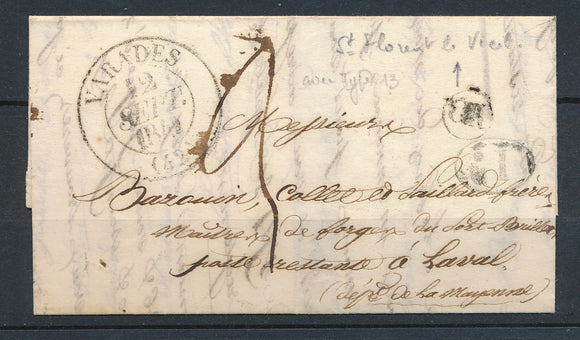 St Florent le Vieil
avec Type 13
VARADES
12
SEPT.
(42)
1D
Messieurs
Barouin, Collet et Paillard frères
Maîtres de forges du Port Brillet
poste restante à Laval.
(dépt de la Mayenne)